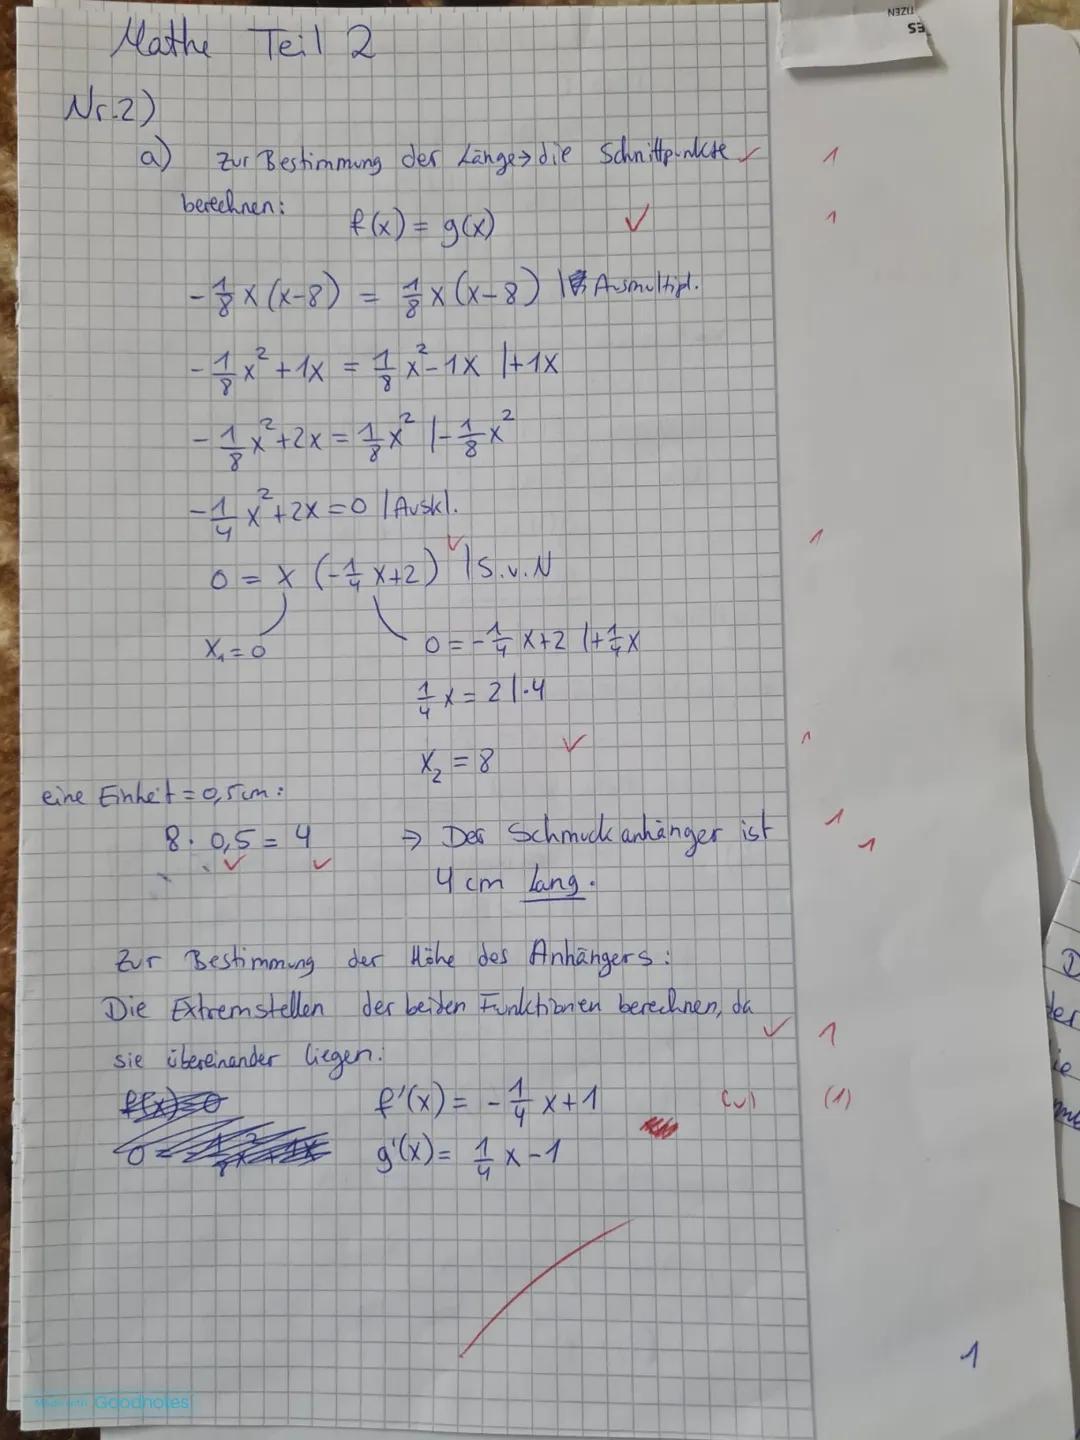 Mathe Teil 2
Nr.2)
a) Zur Bestimmung der Länge → die Schnittpunkte ✓ 1
berechnen:
f(x) = g(x) ✓ 1
-1/8 x (x-8) = 1/8 x (x-8) | Ausmultipl.
-1/8 x² + 1x = 1/8 x² - 1x |+1x
-1/8 x² + 2x = 1/8 x² |-1/8 x²
-1/4 x² + 2x = 0 | Auskl.
0 = x (-1/4 x+2) ✓ | S.v.N 1
x₁ = 0
0 = -1/4 x+2 |+1/4 x
1/4 x = 2 |·4
x₂ = 8 ✓ 1
eine Einheit = 0,5cm:
8 · 0,5 = 4 ⇒ Der Schmuckanhänger ist 1 1
✓ ✓
4 cm lang.
Zur Bestimmung der Höhe des Anhängers:
Die Extremstellen der beiden Funktionen berechnen, da ✓ 1
sie übereinander liegen:
f'(x) = -1/4 x+1 (✓) (1)
g'(x) = 1/4 x-1
1
Made with Goodnotes
NZEN
ES
D
der
ie